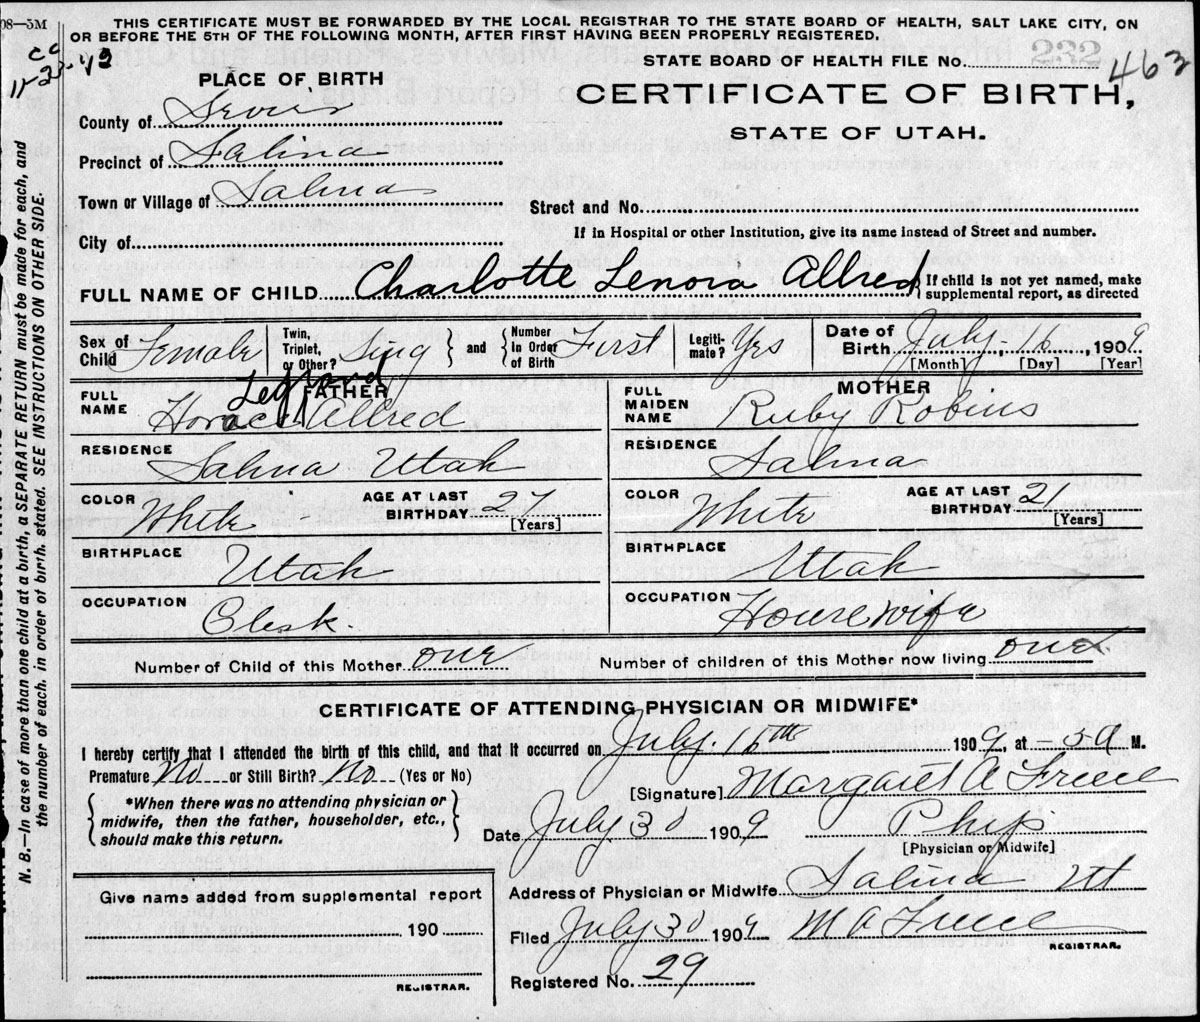 08—5M
THIS CERTIFICATE MUST BE FORWARDED BY THE LOCAL REGISTRAR TO THE STATE BOARD OF HEALTH, SALT LAKE CITY, ON
OR BEFORE THE 5TH OF THE FOLLOWING MONTH, AFTER FIRST HAVING BEEN PROPERLY REGISTERED.
cc
11-23-43
STATE BOARD OF HEALTH FILE No. 232 463
PLACE OF BIRTH
CERTIFICATE OF BIRTH,
STATE OF UTAH.
County of Sevier
Precinct of Salina
Town or Village of Salina
Street and No.
City of
If in Hospital or other Institution, give its name instead of Street and number.
FULL NAME OF CHILD Charlotte Lenora Allred { If child is not yet named, make
supplemental report, as directed
Sex of Child Female Twin, Triplet, or Other? Sing } and { Number in Order of Birth First Legiti- mate? Yes Date of Birth July 16, 1909
[Month] [Day] [Year]
FATHER
FULL NAME Horace Legrand Allred
MOTHER
FULL MAIDEN NAME Ruby Robins
RESIDENCE Salina Utah
RESIDENCE Salina
COLOR White AGE AT LAST BIRTHDAY 27 [Years]
COLOR White AGE AT LAST BIRTHDAY 21 [Years]
BIRTHPLACE Utah
BIRTHPLACE Utah
OCCUPATION Clerk.
OCCUPATION Housewife
Number of Child of this Mother one
Number of children of this Mother now living one
CERTIFICATE OF ATTENDING PHYSICIAN OR MIDWIFE*
I hereby certify that I attended the birth of this child, and that it occurred on July. 16th 1909, at -3-a M.
Premature No or Still Birth? No (Yes or No)
[Signature] Margaret A Freece
{ *When there was no attending physician or
midwife, then the father, householder, etc.,
should make this return. }
Date July 30 1909 Phys
[Physician or Midwife]
Address of Physician or Midwife Salina Ut
Filed July 30 1909 M A Freece
REGISTRAR.
Registered No. 29
Give name added from supplemental report
190
REGISTRAR.
N. B.—In case of more than one child at a birth, a SEPARATE RETURN must be made for each, and
the number of each, in order of birth, stated. SEE INSTRUCTIONS ON OTHER SIDE.